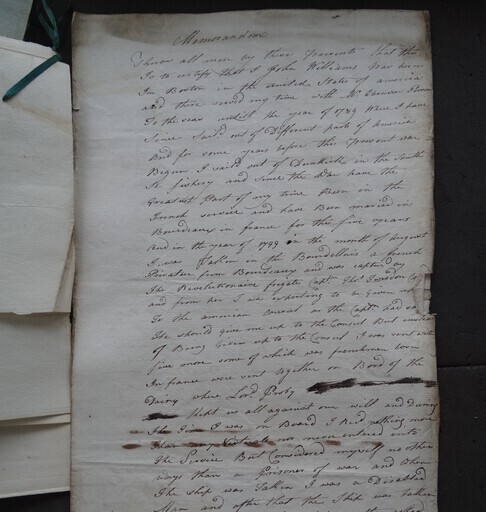 Memorandom
Know all men by these Presents that this
Is to certify that I John Williams was born
In Boston in the united States of america
and there served my time with Mr
To the year untill the year of 1789 Were I have
Since Sail'd out of Different parts of America
And for some years before this Present war
Begun I sail'd out of Dunkirk in the South
Sea fishery and since the War have the
Greatest Part of my time Been in the
French service and have Been married in
Bourdeaux in france for this five years
And in the year of 1799 in the month of August
I was Taken in the Bourdelais a french
Privatter from Bourdeaux and was captured by
The Revolutionaire frigate Capt. Thos. Twesden
and from her I was expecting to be Given up
To the american Consul as the Capt. had
He should give me up to the Consul But instead
of Being Given up to the Consul I was sent with
five more some of which was frenchmen born
In france were sent together on Bord of the
Danny where Lord Prosby
Kept us all against our will and During
the Time I was on Board I Recd nothing more
Than nor never entered into
The Service But Considered myself no other
ways than a Prisoner of war and when
The ship was Taken I was a Disabled
Man and after that the Ship was taken